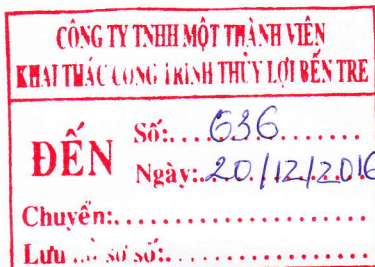 CÔNG TY TNHH MỘT THÀNH VIÊN
KHAI THÁC CÔNG TRÌNH THỦY LỢI BẾN TRE
ĐẾN
Số:....636........
Ngày:20/12/2016
Chuyển:....................
Lưu hồ sơ số:................